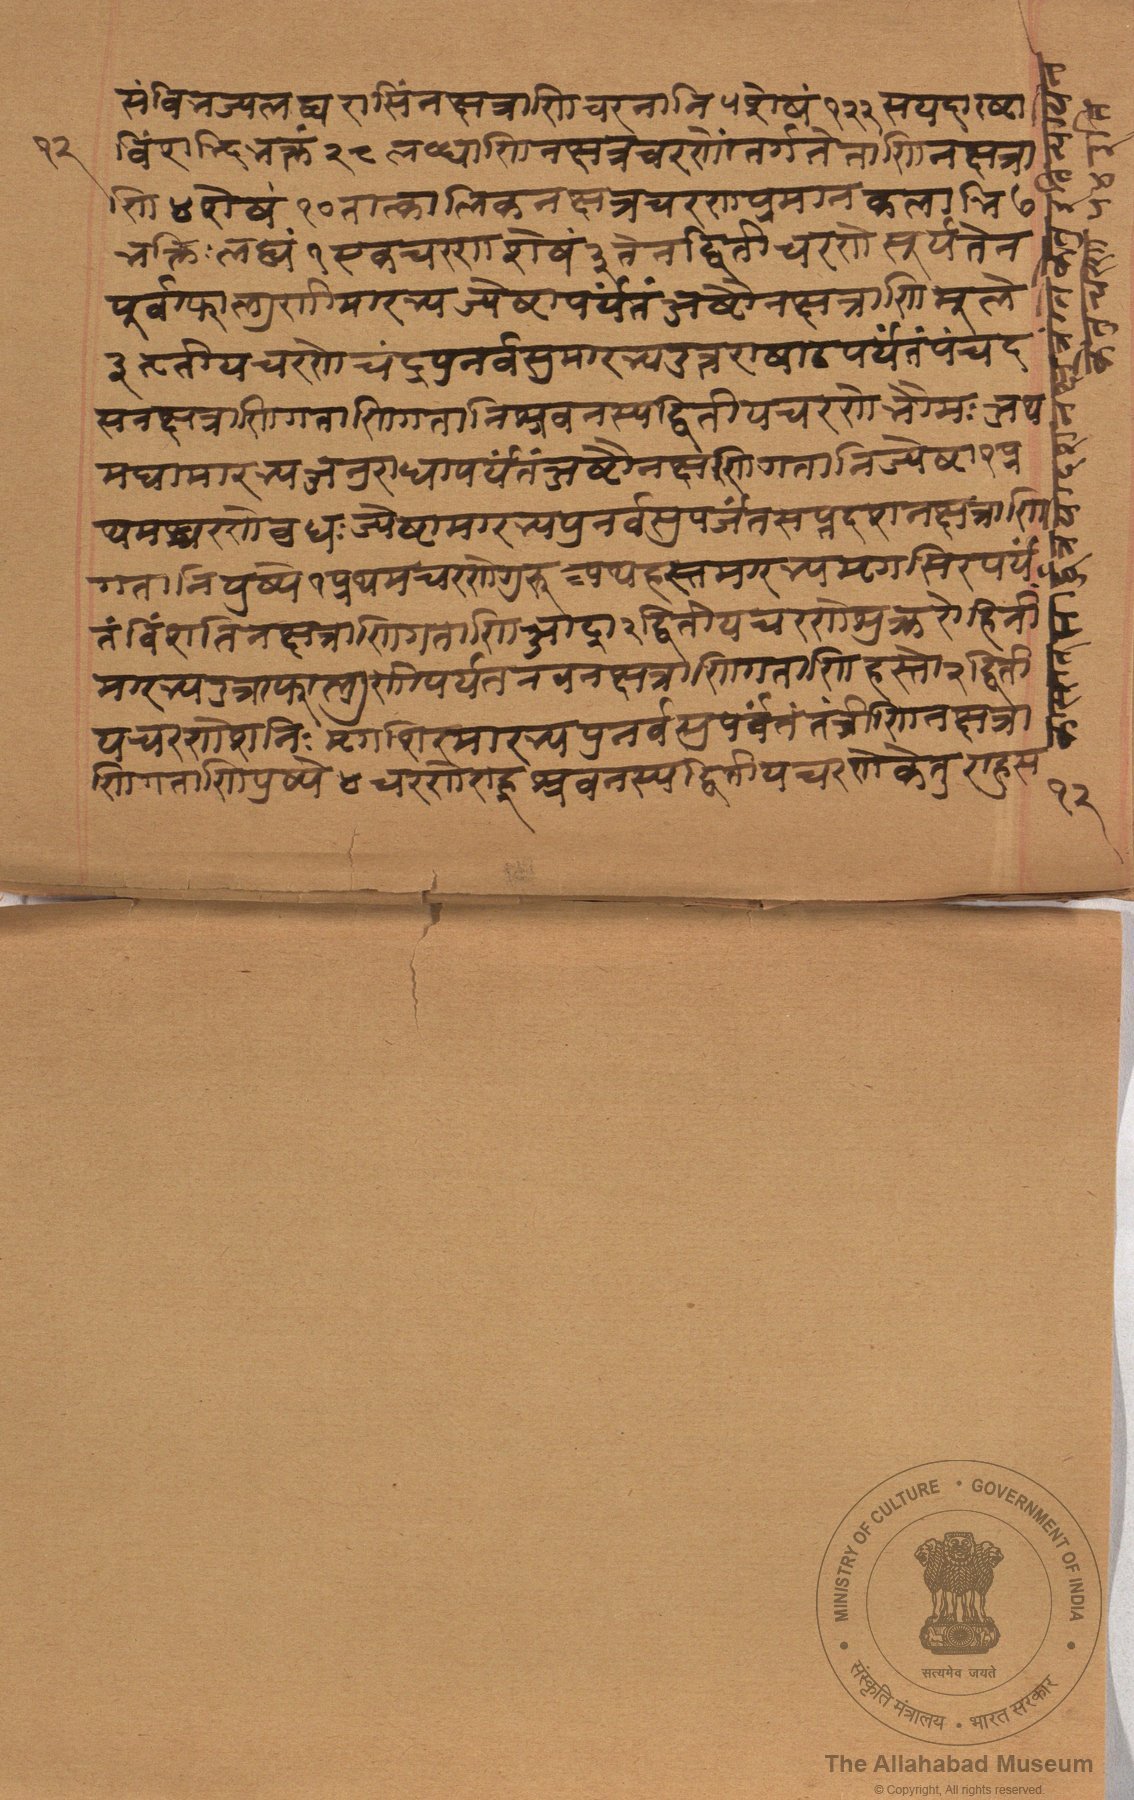 संविभज्यलब्धरासिंनक्षत्राणिचरनानि ५ शेषं १२२ सपदाष्टा
१२
विंशाद्भिभक्तं २८ लब्धाणिनक्षत्रचरणेांतर्गतेताणिनक्षत्रा
णि ४ शेषं १० तात्कालिकनक्षत्रचरणप्रमानकलाभि ७
भक्तिः लब्धं १ एकचरण शेषं ३ तेनद्वितीचरणे सूर्यतेन
पुर्वाफाल्गुणीमारभ्यज्येष्टापर्यंतंअष्टौनक्षत्राणि मुले
३ तृतीयचरणे चंद्रपुनर्वसुमारभ्यउत्तराषाढपर्यंतंपंचद
सनक्षत्राणिगताणिगतानिश्रवनस्यद्वितीयचरणे भौमः अथ
मघामारभ्यअनुराधापर्यंतंअष्टौनक्षत्राणिगतानिज्येष्टा १ प्र
थमश्चरणेबुधः ज्येष्टामारभ्यपुनर्वसुपर्जंतसप्तदशनक्षत्राणि
गतानिपुष्ये १ प्रथमचरणेगुरु अथहस्तमारभ्यमृगसिरपर्यं
तंविंशतिनक्षत्राणिगताणिआद्रा २ द्वितीयचरणेशुक्ररोहिनी
मारभ्यउत्राफाल्गुणीपर्यंतनवनक्षत्राणिगताणिहस्ते २ द्विती
यचरणेशनिः मृगशिरमारभ्यपुनर्वसुपर्यंतंतंत्रीणिनक्षत्रा
णिगताणिपुष्ये ४ चरणेराहु श्रवनस्यद्वितीयचरणेकेतु राहुस
१२
MINISTRY OF CULTURE • GOVERNMENT OF INDIA
सत्यमेव जयते
संस्कृति मंत्रालय • भारत सरकार
The Allahabad Museum
© Copyright, All rights reserved.